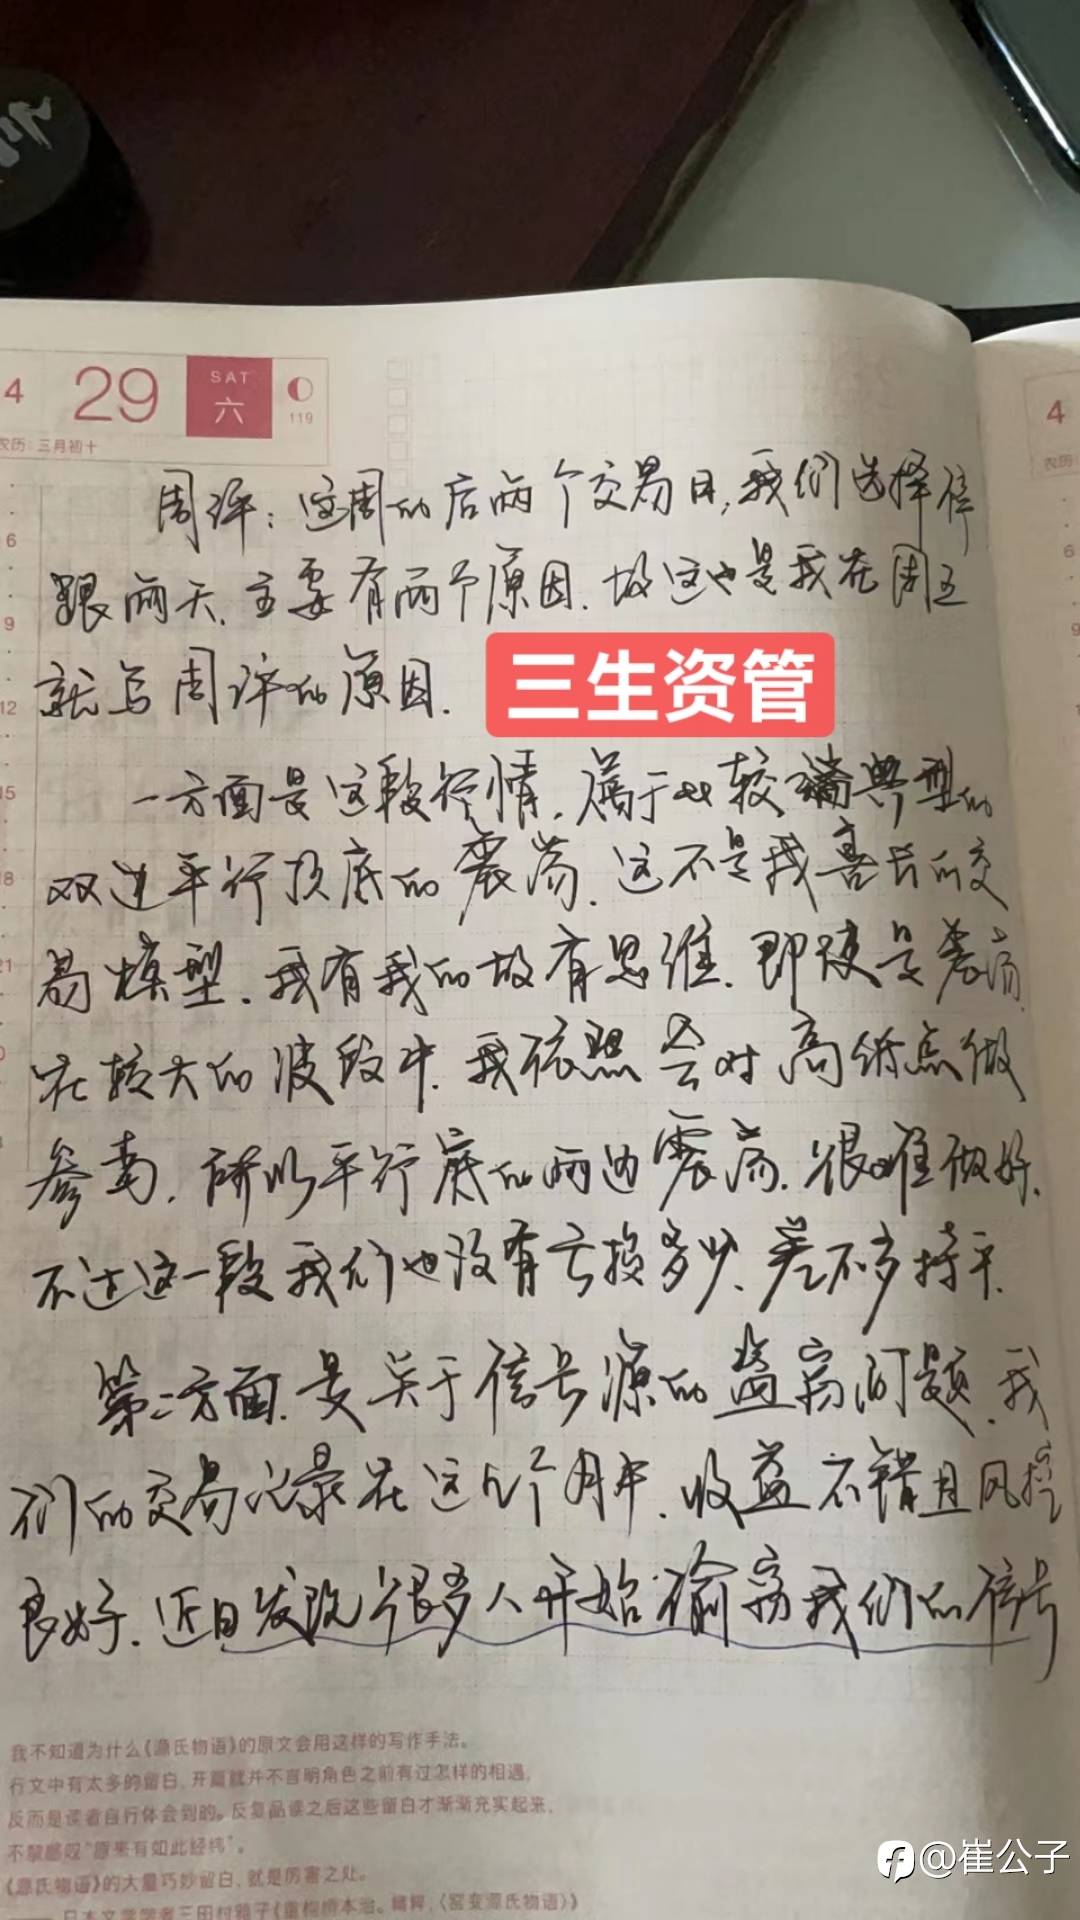 4 29 SAT 六 119
农历:三月初十
4
农历:
周评：这周的后两个交易日，我们选择停
跟两天，主要有两个原因．故这也是我在周五
就写周评的原因．
三生资管
一方面是这段行情，属于比较典型的
双边平行顶底的震荡．这不是我喜欢的交
易模型．我有我的故有思维．即使是震荡
在较大的波段中．我依照会对高低点做
参考，所以平行底的两边震荡．很难做好．
不过这一段我们也没有亏损多少、差不多持平．
第二方面．是关于信号源的盗窃问题．我
们的交易记录在这几个月中．收益不错且风控
良好．近日发现很多人开始偷窃我们的信号
我不知道为什么《源氏物语》的原文会用这样的写作手法。
行文中有太多的留白，开篇就并不言明角色之前有过怎样的相遇，
反而是读者自行体会到的。反复品读之后这些留白才渐渐充实起来，
不禁感叹“原来有如此经纬”。
《源氏物语》的大量巧妙留白，就是厉害之处。
日本文学学者三田村雅子《重构桥本治。精粹，〈窑变源氏物语〉》
@崔公子